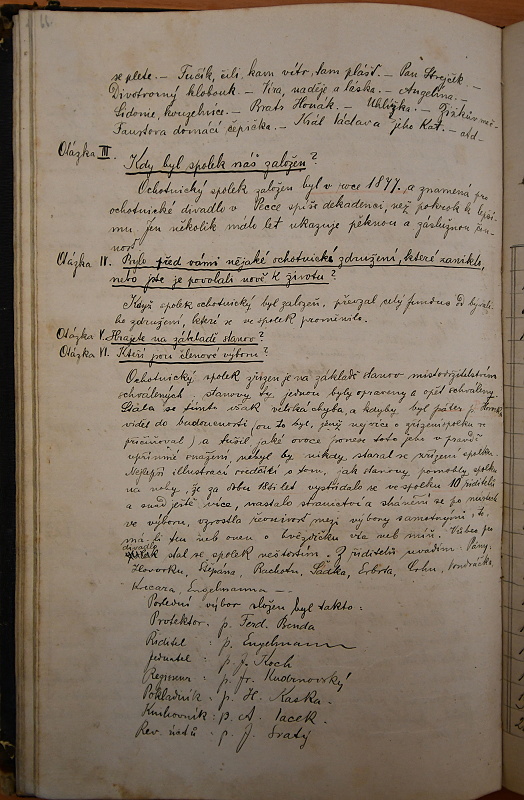 66.
se plete. — Tučík, čili, kam vítr, tam plášť. — Pan Strejček. —
Divotvorný klobouk. — Víra, naděje a láska. — Angelina. —
Sidonie, kouzelnice. — Bratr Honák. — Uhlířka. —
Faustova domácí čepička. — Král Václav a jeho Kat. — atd.
Otázka III. Kdy byl spolek náš založen?
Ochotnický spolek založen byl v roce 1877. a znamená pro
ochotnické divadlo v Pecce spíše dekadenci, než pokrok k lepší-
mu. Jen několik málo let ukazuje pěknou a záslužnou čin-
nost.
Otázka IV. Bylo před vámi nějaké ochotnické združení, které zaniklo,
nebo jste je povolali nově k životu?
Když spolek ochotnický byl založen, převzal celý fundus od býval-
ho združení, které se ve spolek proměnilo.
Otázka V. Hrajete na základě stanov?
Otázka VI. Kteří jsou členové výboru?
Ochotnický spolek zřízen je na základě stanov místodržitelstvím
schválených, stanovy ty jednou byly opraveny a opět schváleny.
Stala se tímto však veliká chyba, a kdyby byl páter p.
viděl do budoucnosti (on to byl, jenž nejvíce o zřízení spolku se
přičiňoval) a tušil jaké ovoce ponese toto jeho v pravdě
upřímné snažení, nebyl by nikdy stanul se zřízení spolku.
Nejlepší illustrací svědčící o tom, jak stanovy pomohly spolku
na nohy, že za dobu 18ti let vystřídalo se ve spolku 10 ředitelů
a snad ještě více, nastalo strannictví a shánění se po místech
ve výboru, vzrostla řevnivost mezi výbory samotnými, t.
má-li ten neb onen o hvězdičku víc neb míň. Vůbec pro
divadlo stal se spolek neštěstím. Z ředitelů uvádím: Pány:
Hovorku, Štěpána, Bachotu, Sádka, Erbrta, Crhu, Vondráčka,
Kocara, Engelmanna —
Poslední výbor složen byl takto:
Protektor: p. Ferd. Benda
Ředitel : p. Engelmann
Jednatel : p. J. Koch
Regisseur : p. Fr. Kudrnovský
Pokladník: p. H. Kaska.
Knihovník: p. A. Vacek.
Rev. účtů : p. J. Svatý